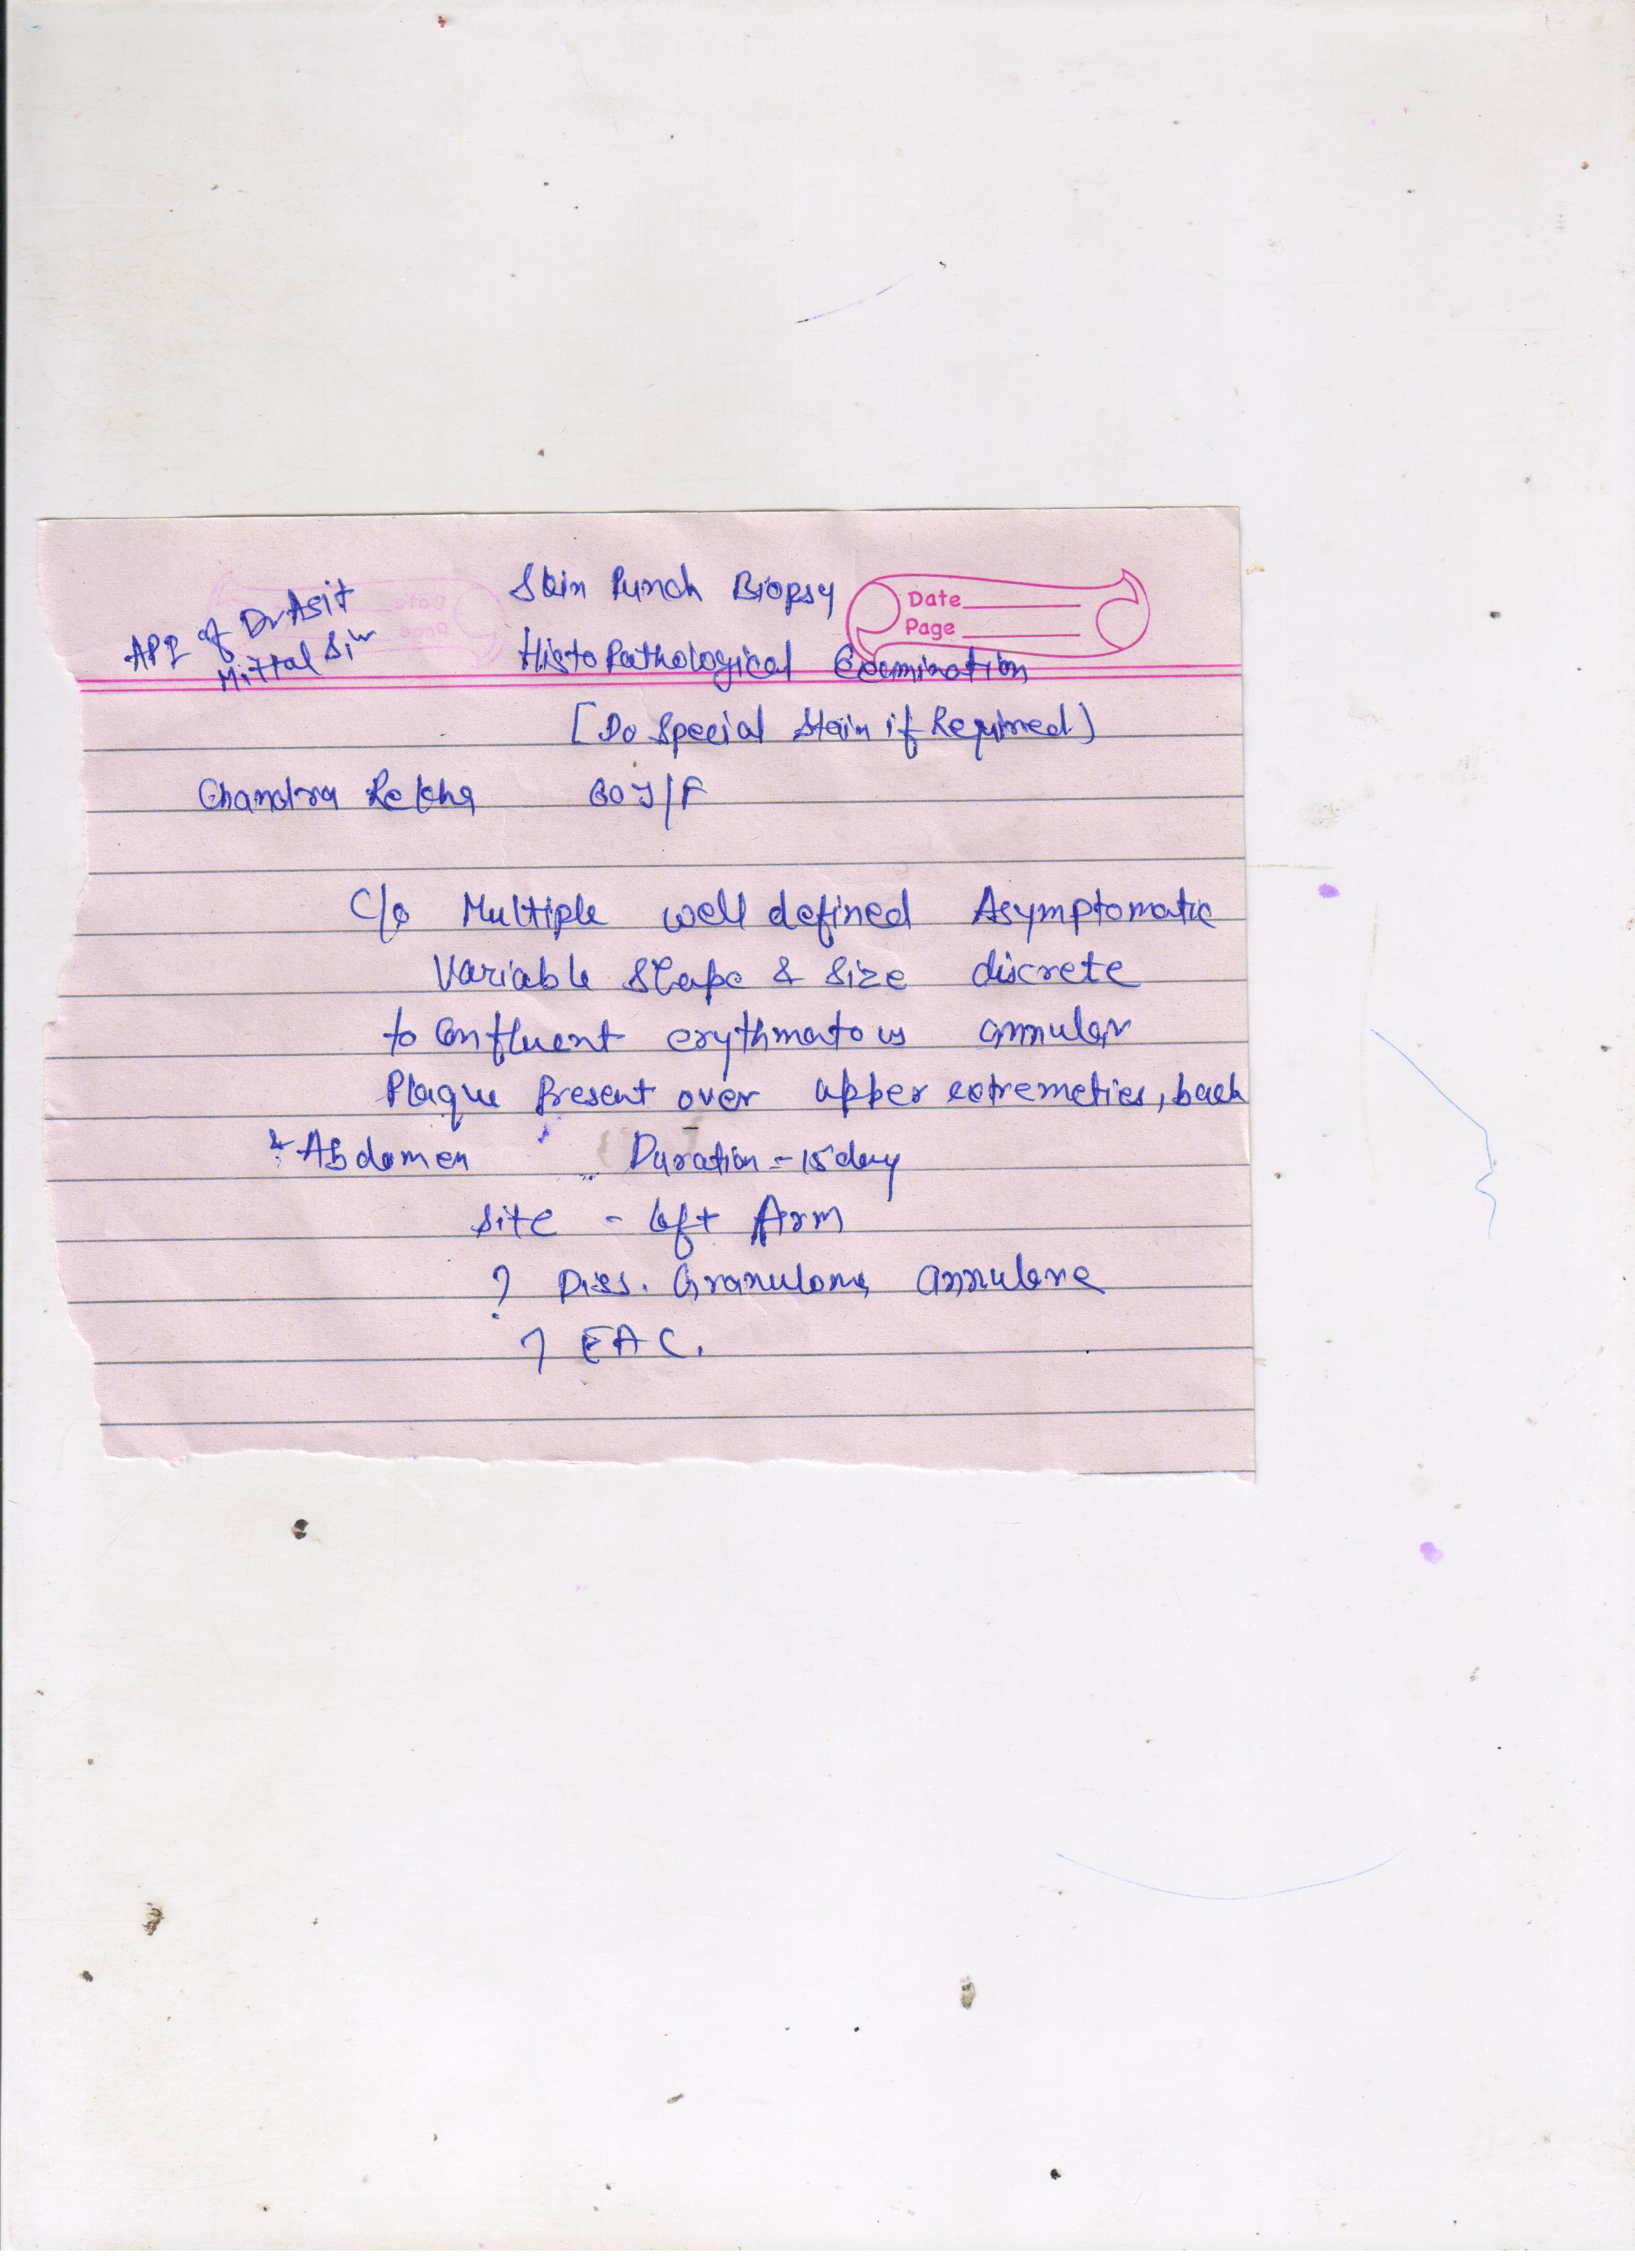 Skin Punch Biopsy
of Dr Asit
Mittal Sir
Date
Page
Histo Pathological Examination
[Do Special Stain if Required)
Chandra Rekha 60 y/F
C/o Multiple well defined Asymptomatic
Variable Shape & Size discrete
to Confluent erythmatous annular
Plaque Present over upper extremeties, back
& Abdomen Duration - 15 day
Site - left Arm
? Diss. Granuloma annulare
? EAC.